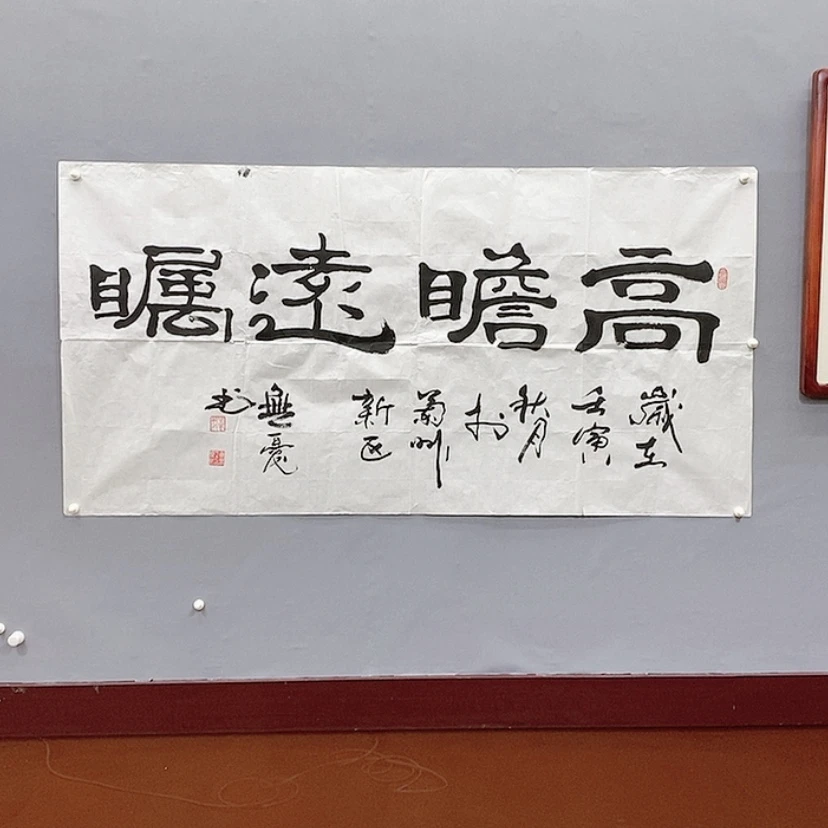 高瞻遠矚
歲在
壬寅
秋月
於
蘭州
新区
無憂
书